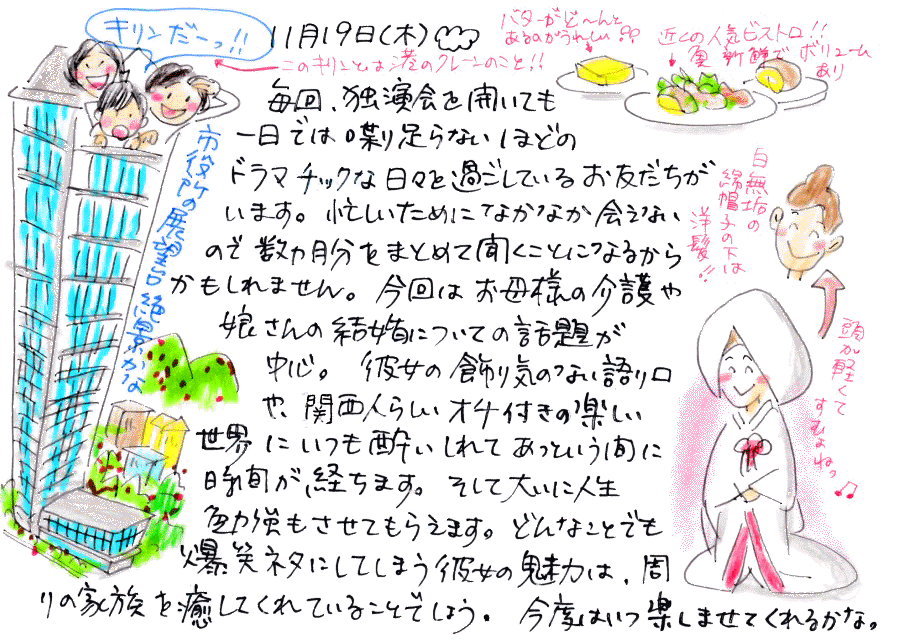 キリンだーっ!!
11月19日(木)
このキリンとは港のクレーンのこと!!
バターがど〜んと
あるのがうれしい!!
近くの人気ビストロ!!
魚新鮮で ボリューム
あり
毎回、独演会を開いても
一日では喋り足らないほどの
ドラマチックな日々を過ごしているお友だちが
います。忙しいためになかなか会えない
ので数ヵ月分をまとめて聞くことになるから
かもしれません。今回はお母様の介護や
娘さんの結婚についての話題が
中心。彼女の飾り気のない語り口
や、関西人らしいオチ付きの楽しい
世界にいつも酔いしれてあっという間に
時間が経ちます。そして大いに人生
勉強もさせてもらえます。どんなことでも
爆笑ネタにしてしまう彼女の魅力は、周
りの家族を癒してくれていることでしょう。今度はいつ楽しませてくれるかな。
市役所の展望台 絶景かな
白無垢の
綿帽子の下は
洋髪!!
頭が軽くて
すむよねっ♫